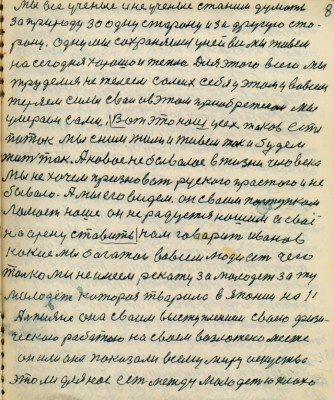 8
Мы все ученые и неученые станим думать
за природу за одну сторону и за другую сто-
рону. Одну мы сохраняем у ней ве мы живем
на сегодня хорошо и тепло Для этого всего мы
трудимся не жалеем самих себя у этом у вовсем
теряем силы сваи и в этом приобретаем мы
умираем сами. Вот это наш усех таков есть
поток мы с ним жили и живем так и будем
жить так. А новое не бывалое в жизни человека
Мы не хочем призновать руского прастого и не
бывало. А мы его видем он своим поступком
ламает наше он не радуется нашим а своё
на арену ставить нам говарит иванов
какие мы богатой вовсем люди ест чего
только мы не имеем рекаху за молодеж за ту
молодеж которая тварила в Японии но !!
она своим выступлением сваею физи-
ческою работаю на своем возложено месте
он или она показали всему миру искуство
это ли для нас ест между молодежю плохо